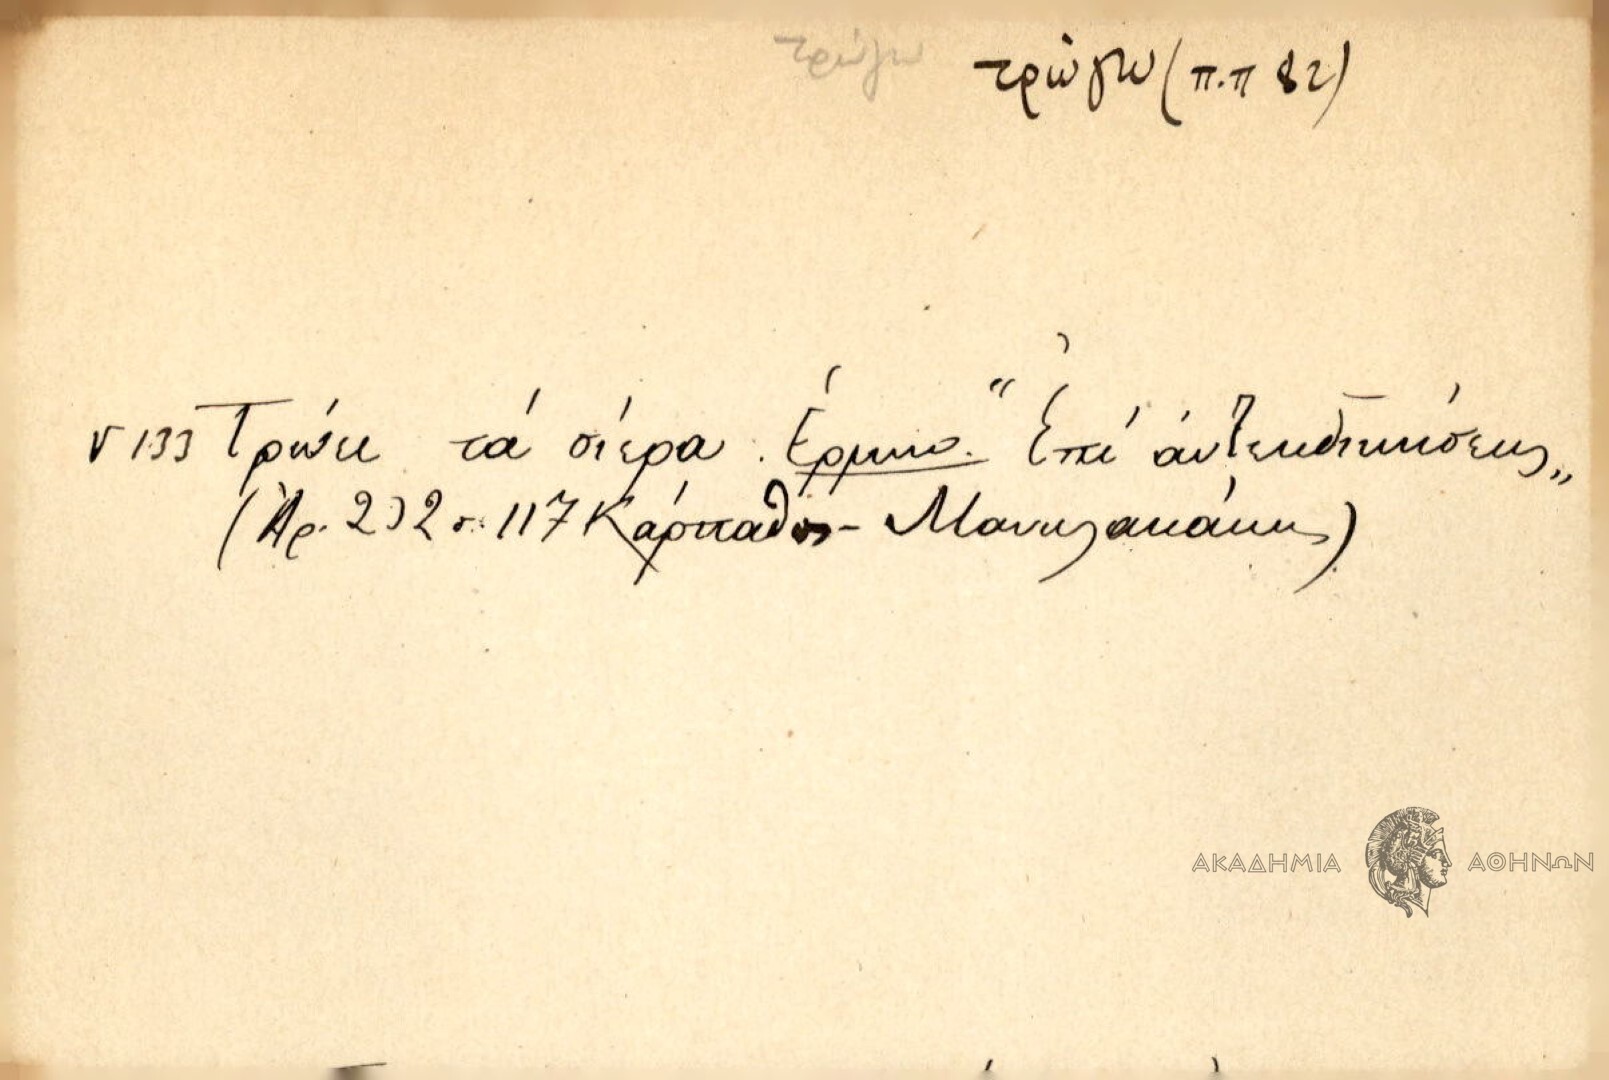 τρώγω τρώγω (π.π 82)
133 Τρώει τά σίερα. Ἑρμην. "Ἐπί ἀντεκδικήσεως„
(Ἀρ. 232 σ. 117 Κάρπαθος - Μανωλακάκης)
ΑΚΑΔΗΜΙΑ ΑΘΗΝΩΝ